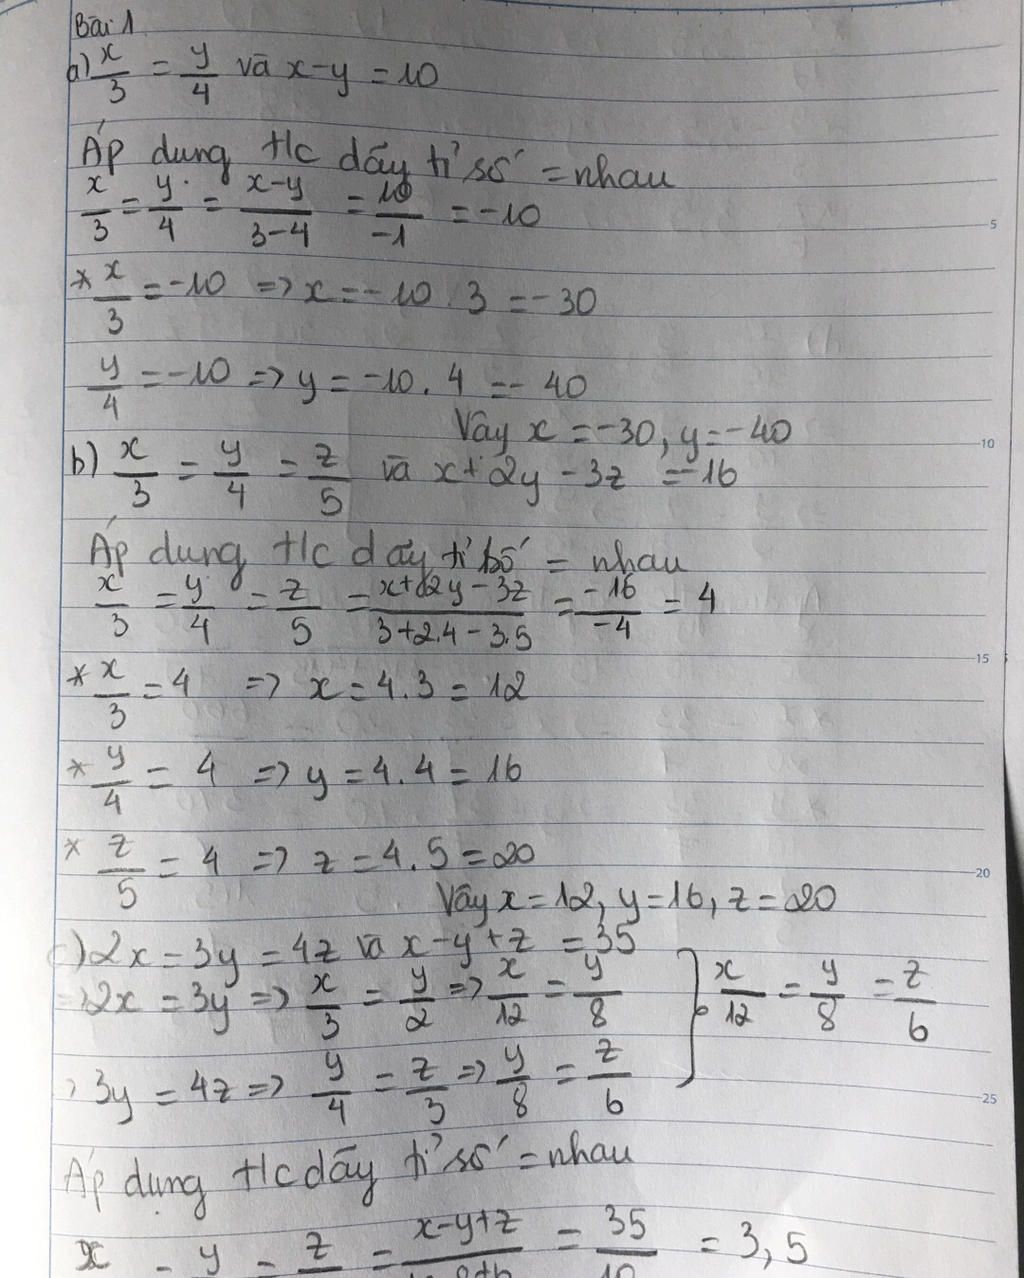 Bài 1
a) x/3 = y/4 và x-y = 10
Áp dung t/c dãy tỉ số = nhau
x/3 = y/4 = x-y/3-4 = 10/-1 = -10
* x/3 = -10 => x = -10 . 3 = -30
y/4 = -10 => y = -10. 4 = -40
Vậy x = -30, y = -40
b) x/3 = y/4 = z/5 và x + 2y - 3z = -16
Áp dung t/c dãy tỉ số = nhau
x/3 = y/4 = z/5 = x+2y-3z/3+2.4-3.5 = -16/-4 = 4
* x/3 = 4 => x = 4.3 = 12
* y/4 = 4 => y = 4.4 = 16
* z/5 = 4 => z = 4.5 = 20
Vậy x = 12, y = 16, z = 20
c) 2x = 3y = 4z và x-y+z = 35
=> 2x = 3y => x/3 = y/2 => x/12 = y/8 } x/12 = y/8 = z/6
3y = 4z => y/4 = z/3 => y/8 = z/6
Áp dụng t/c dãy tỉ số = nhau
x = y = z = x-y+z = 35/10 = 3,5